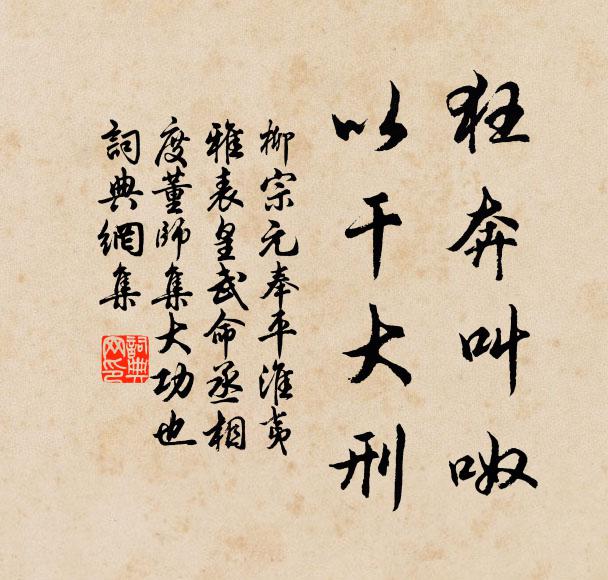 狂奔叫呶
以干大刑
柳宗元奉平淮夷
雅表皇武命丞相
度董師集大功也
詞典網集
詞典
网印